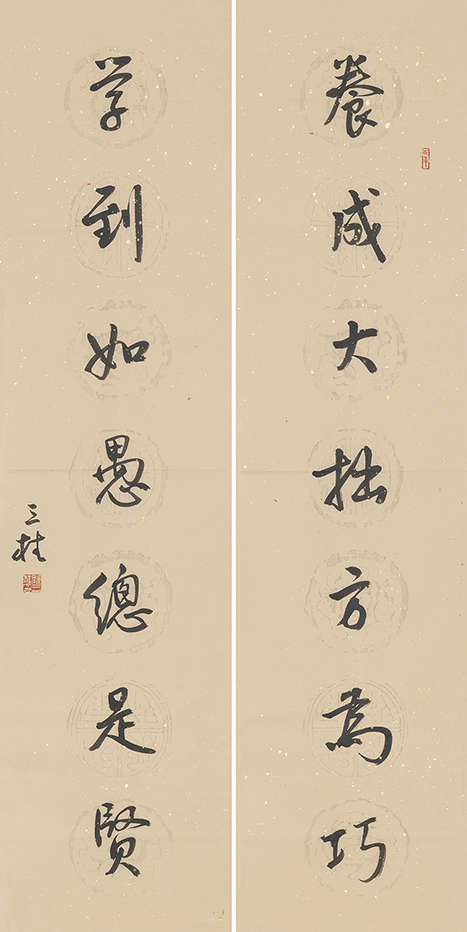 養成大拙方為巧
学到如愚總是賢
三桂